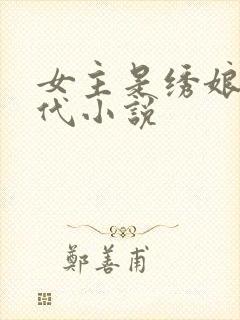 女主是绣娘
代小説
鄭善甫